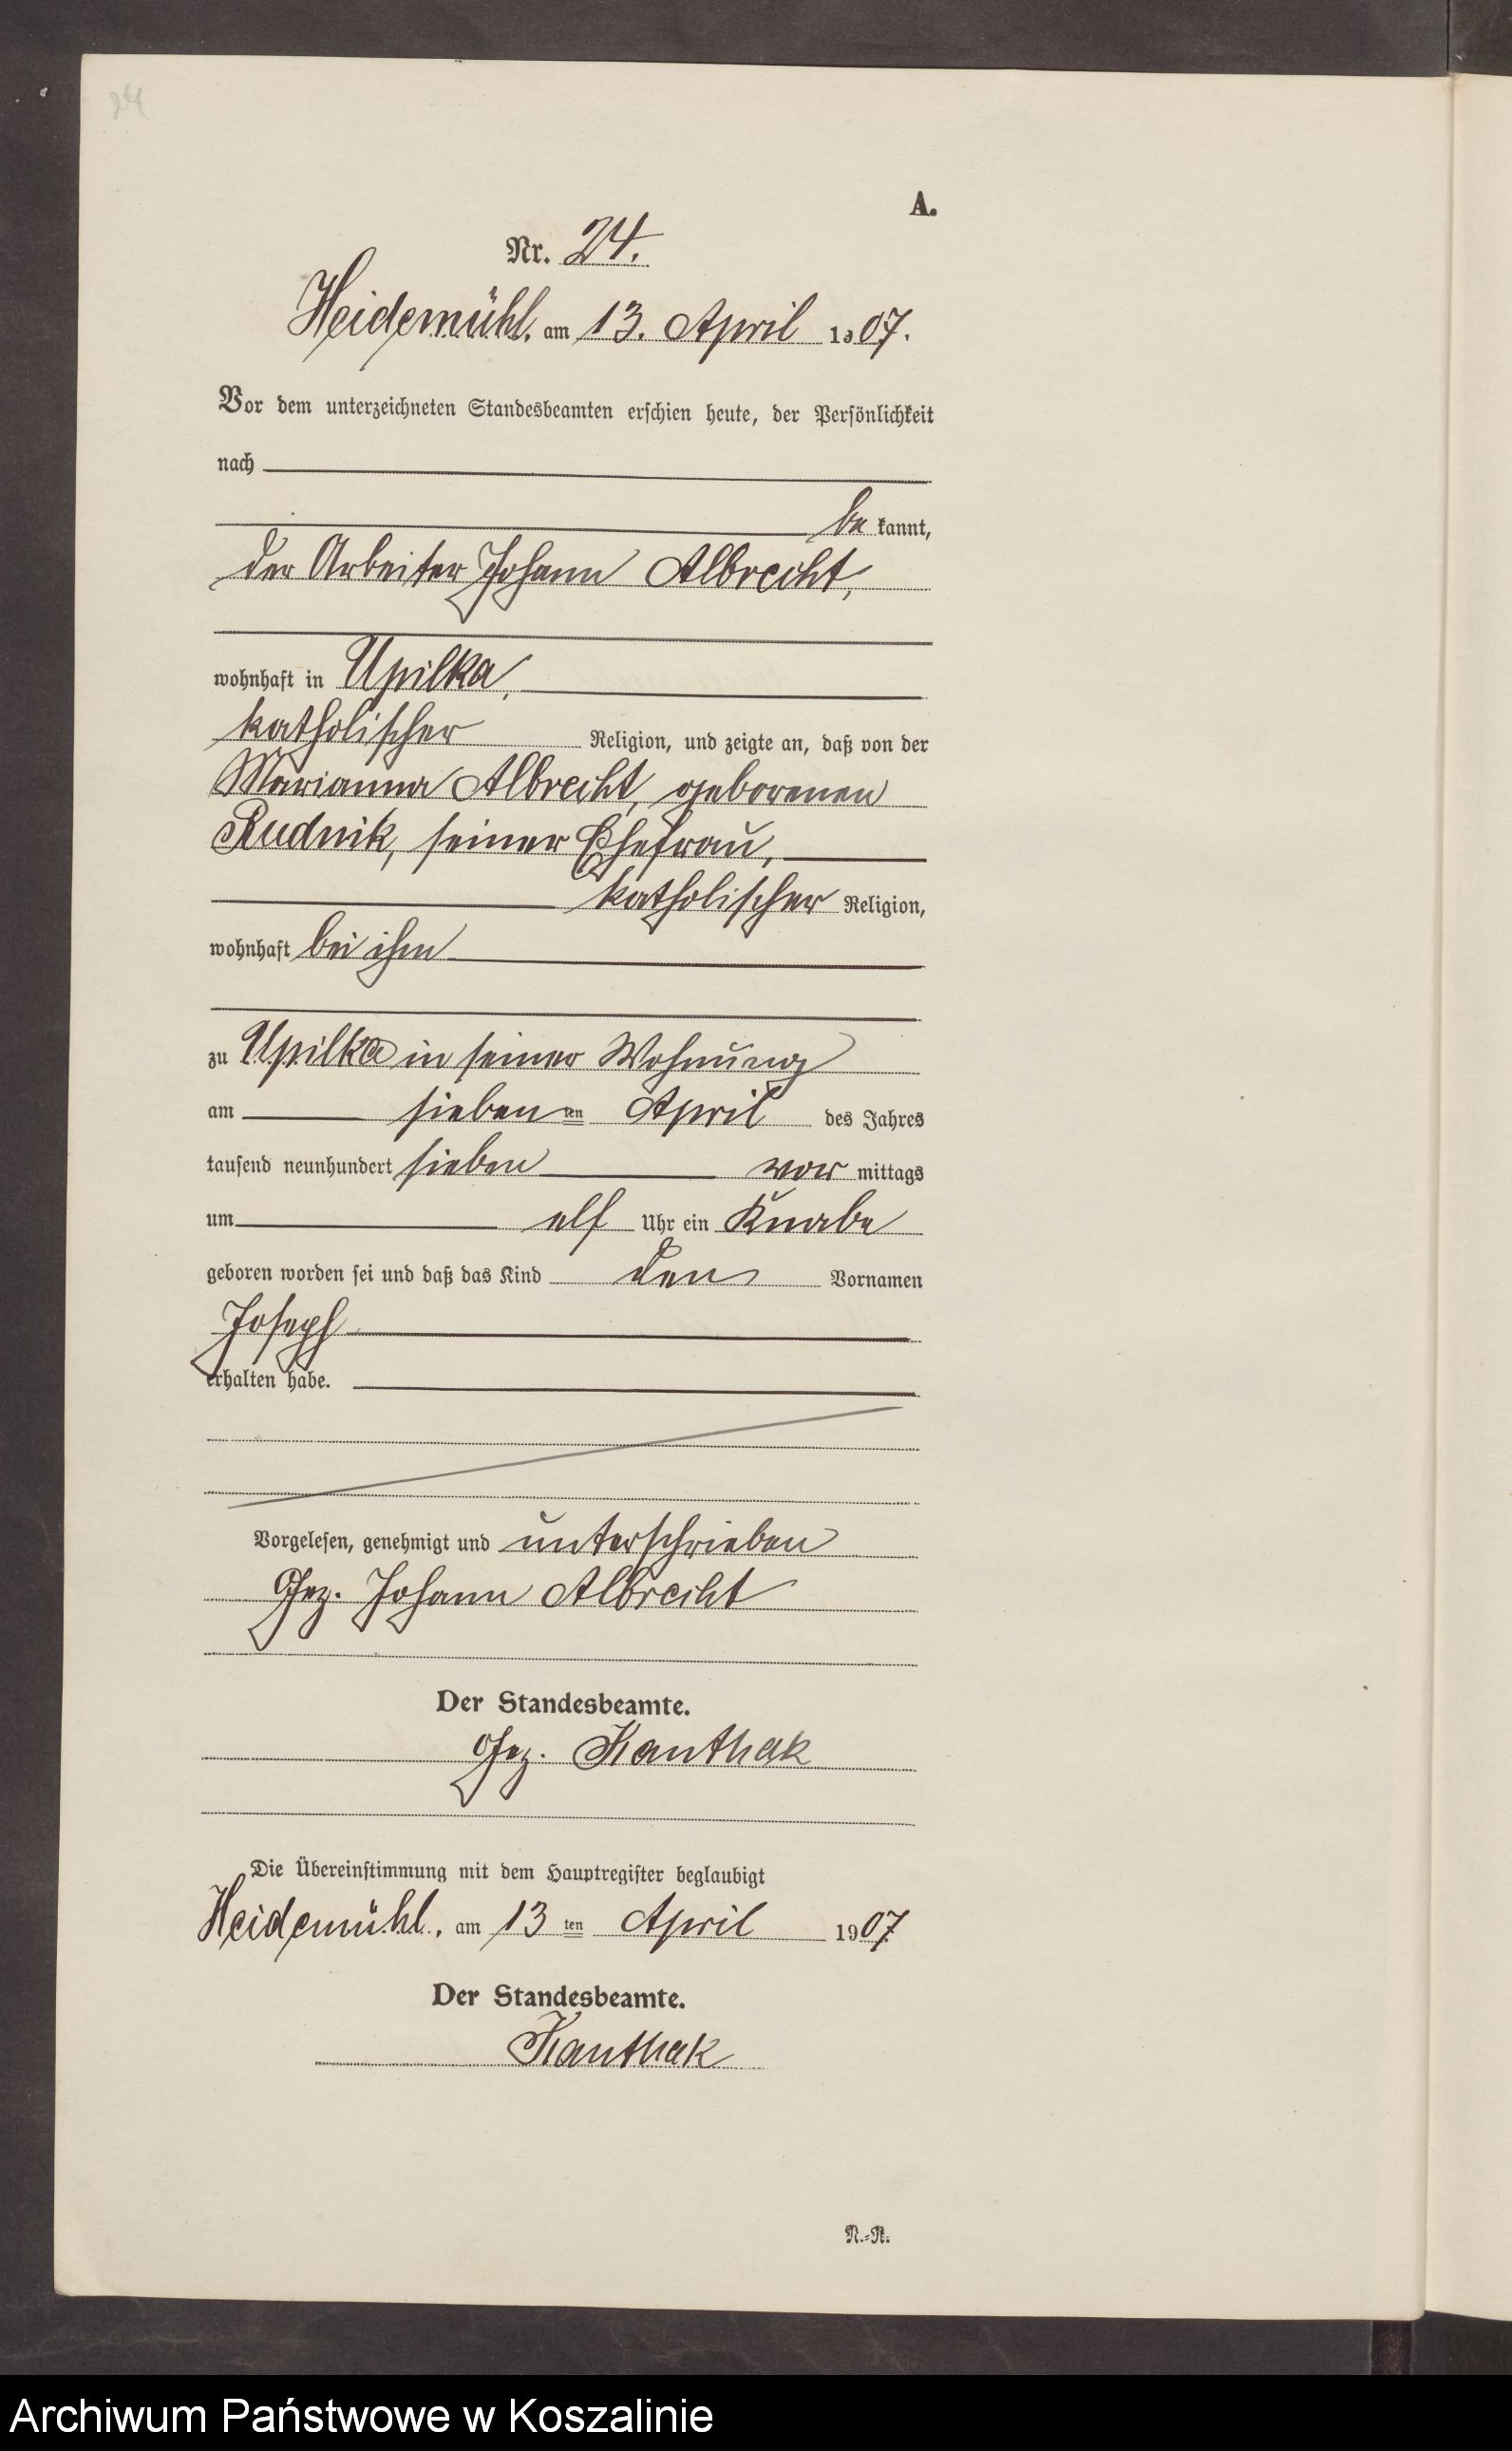 24
A.
Nr. 24.
Heidemühl, am 13. April 1907.
Vor dem unterzeichneten Standesbeamten erschien heute, der Persönlichkeit
nach
be kannt,
der Arbeiter Johann Albrecht,
wohnhaft in Upilka,
katholischer Religion, und zeigte an, daß von der
Marianna Albrecht, geborenen
Rudnik, seiner Ehefrau,
katholischer Religion,
wohnhaft bei ihm
zu Upilka in seiner Wohnung
am sieben ten April des Jahres
tausend neunhundert sieben vor mittags
um elf Uhr ein Knabe
geboren worden sei und daß das Kind den Vornamen
Joseph
erhalten habe.
Vorgelesen, genehmigt und unterschrieben
Gez. Johann Albrecht
Der Standesbeamte.
Gez. Kanthak
Die Übereinstimmung mit dem Hauptregister beglaubigt
Heidemühl, am 13 ten April 1907
Der Standesbeamte.
Kanthak
N.-R.
Archiwum Państwowe w Koszalinie